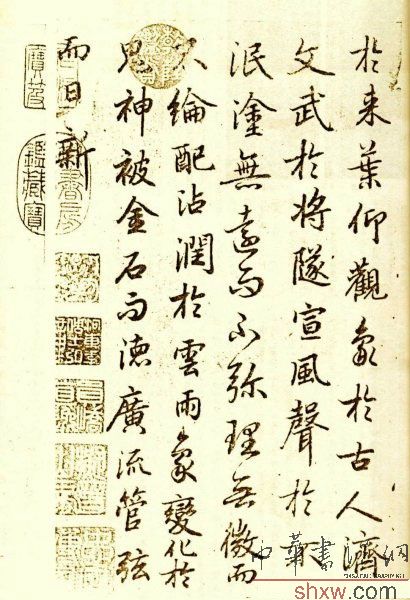 於来葉仰觀象於古人濟
文武於将隧宣風聲於不
泯塗無遠而不弥理無微而
不綸配沾潤於雲雨象變化於
鬼神被金石而德廣流管弦
而日新
寶笈
鑑藏寶
書房
中華書法網
shxw.com